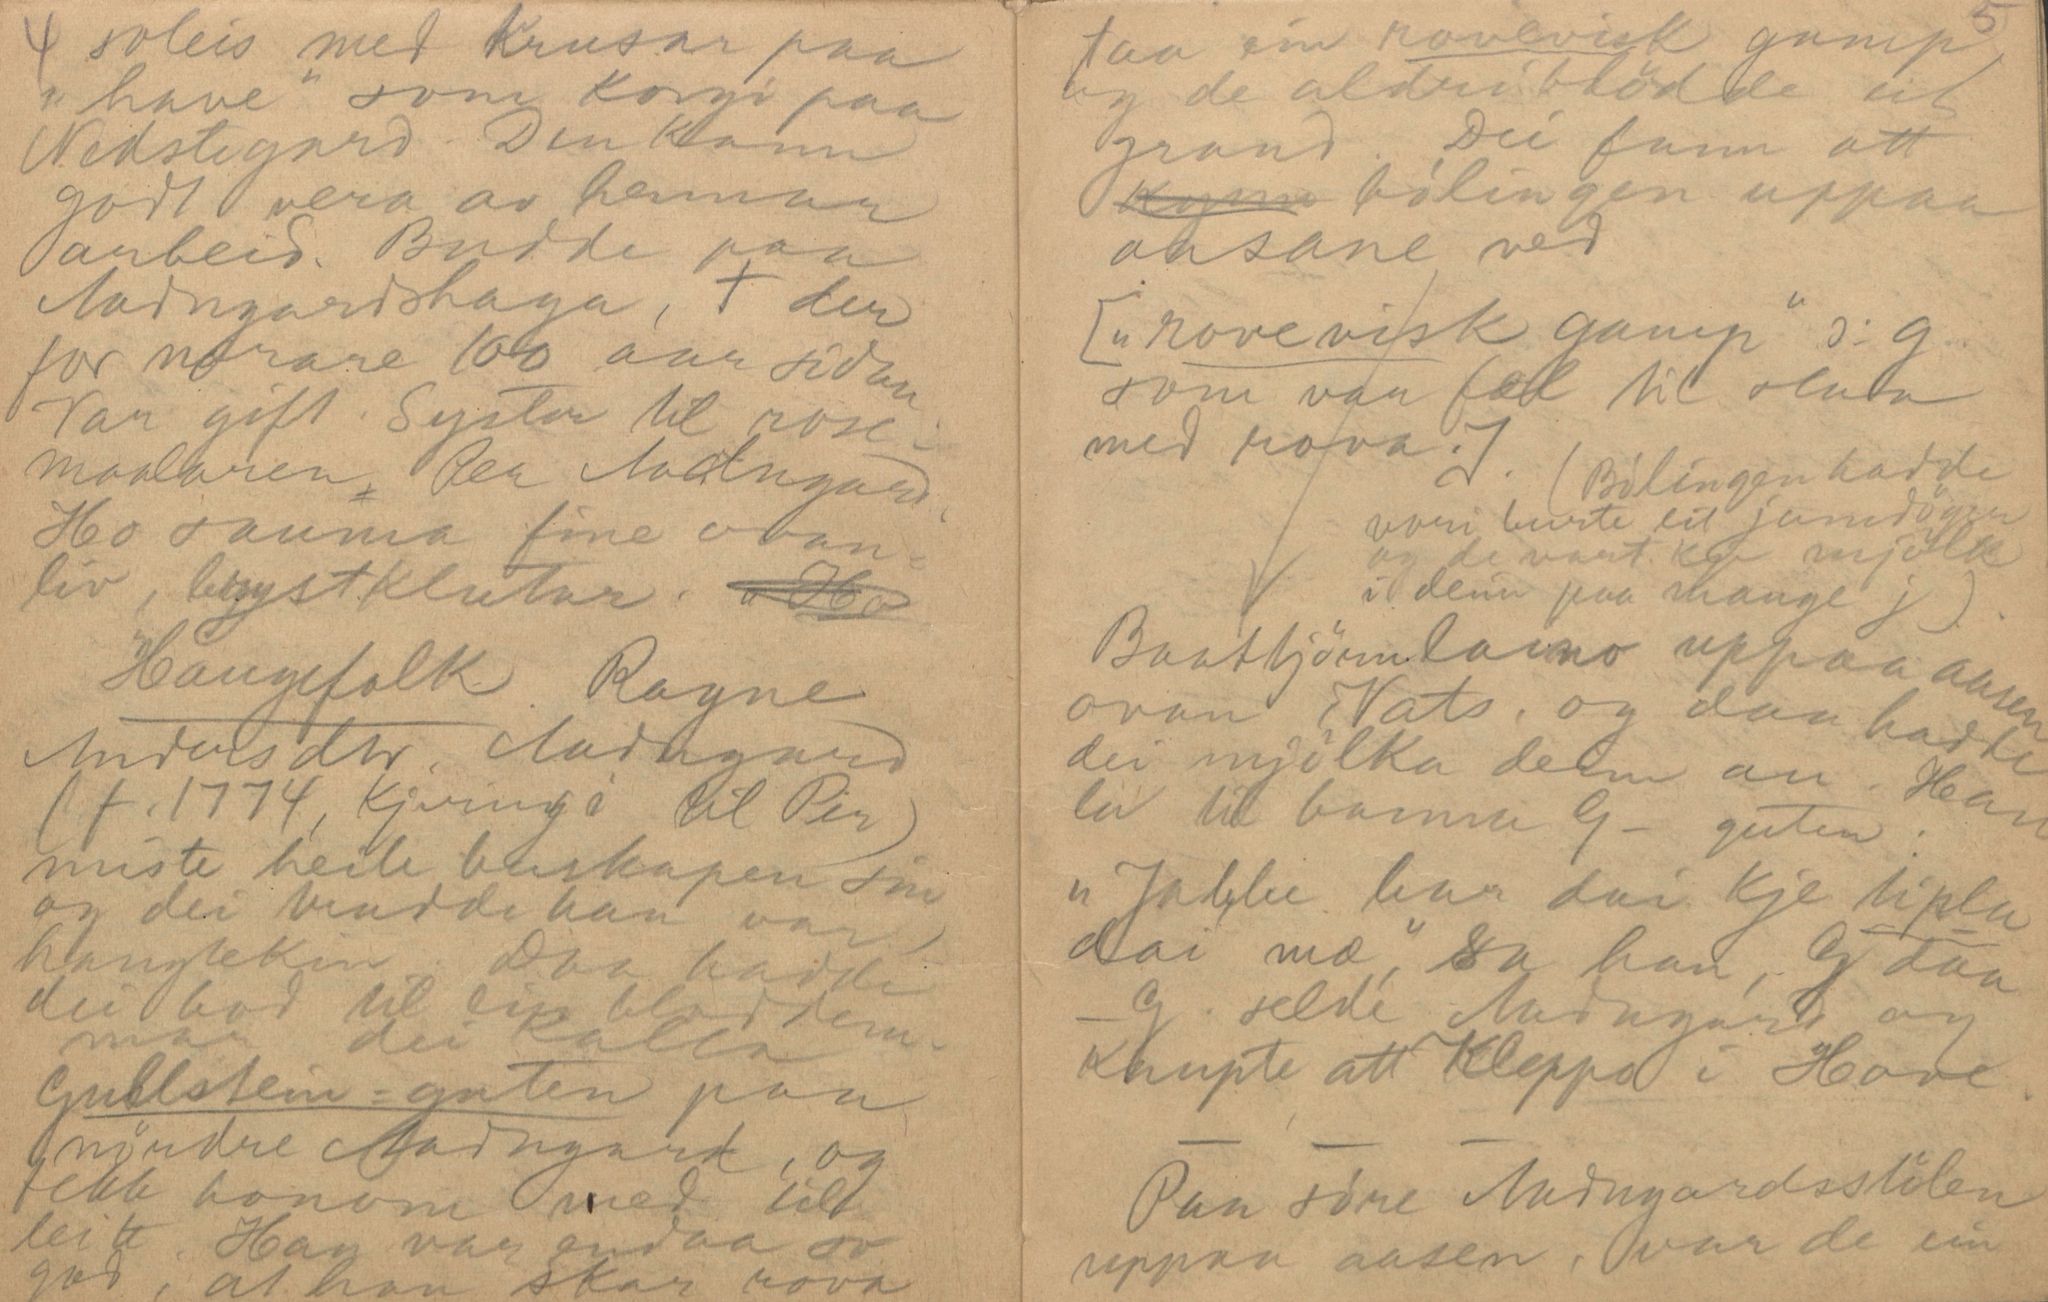 4 soleis med krusar paa
"have" som korgi paa
Nedstegard. Den kann
godt vera av hennar
arbeid. Budde paa
Aadngardshaga, † der
for nörare 100 aar sidan
Var gift. Syster til rose-
maalaren, Per Aadngard.
Ho sauma fine ovan-
liv, brystklutar. "Ho
Haugefolk. Ragne
Andersdtr. Aadngard
(f. 1774, kjeringi til Per)
miste heile buskapen sin
og dei trudde han var
haugtekin. Daa hadde
dei bod til ein bloddem-
mar dei kalla
Gullstein=guten paa
nördre Aadngard, og
fekk honom med til
leitt. Han var endaa so
god, at han skar rova
5
taa ein rovevisk gamp
og de aldri blödde eit
grand. Dei fann att
kyrne bölingen uppaa
aasane ved
["rovevisk gamp" ɔ: g.
som var fæl til slaa
med rova.].
(Bölingen hadde
vori burte eit jamdöger
og de vart kje mjölk
i deim paa mange j).
Baatbjörnlaino uppaa aasen
ovan Nats. og daa hadde
dei mjölka deim au. Han
lei til banna G- guten.
"Jabbe har dai kje tipla
dai mæ", sa han, G daa
- G. selde Aadngard og
kaupte att Kleppo i Hove.
— — —
Paa söre Aadngardsstölen
uppaa aasen, var de ein